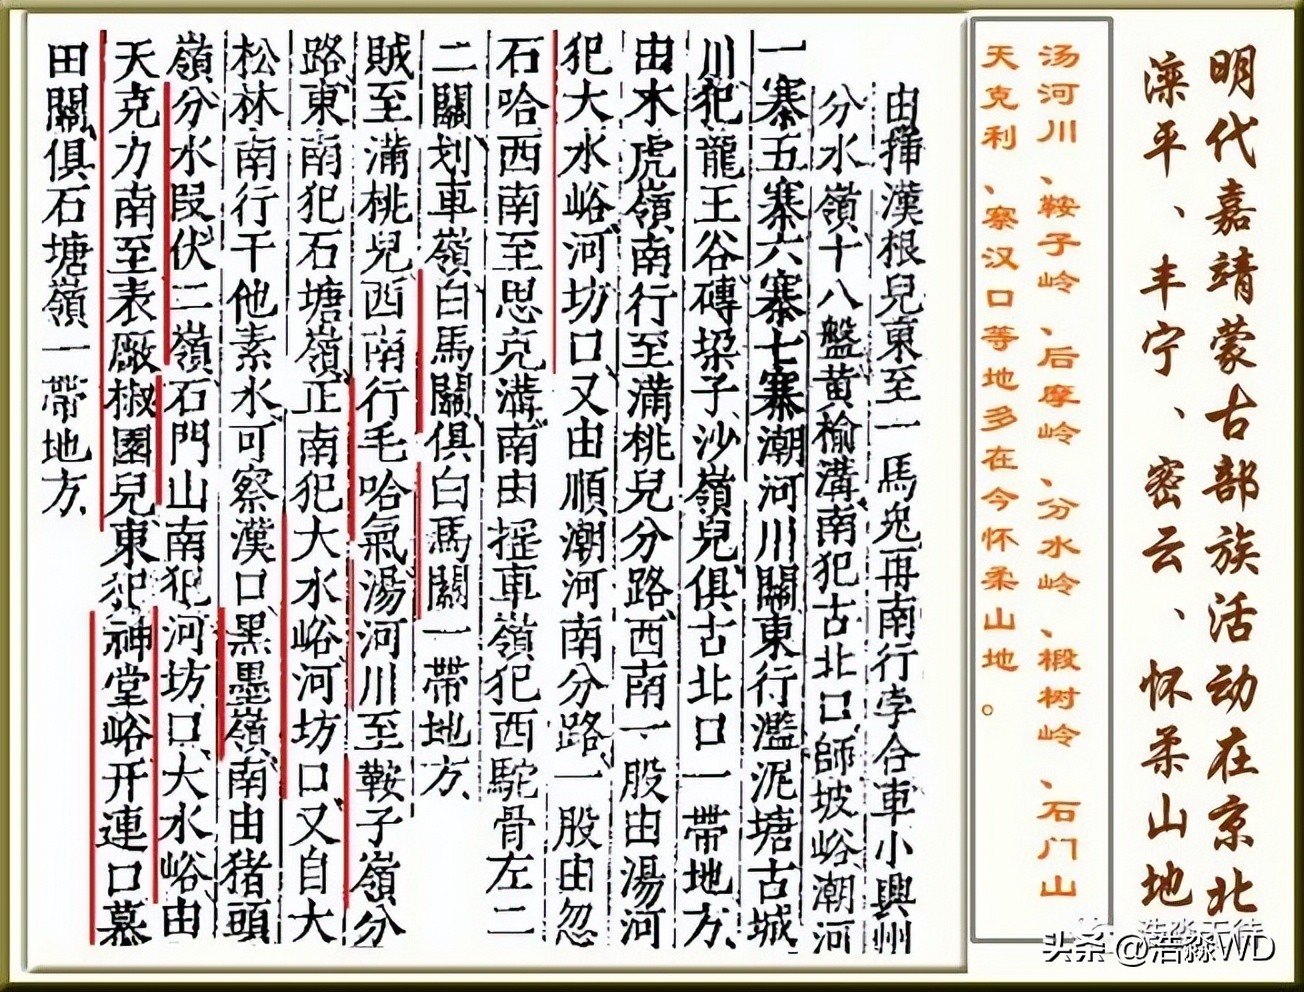 明代嘉靖蒙古部族活动在京北
滦平、丰宁、密云、怀柔山地
汤河川、鞍子岭、后摩岭、分水岭、椴树岭、石门山
天克利、察汉口等地多在今怀柔山地。
由揷漢根兒東至一馬兔再南行孛合車小興州
分水嶺十八盤黄榆溝南犯古北口師坡峪潮河
一寨五寨六寨七寨潮河川關東行濫泥塘古城
川犯龍王谷磚垜子沙嶺兒俱古北口一帶地方
由木虎嶺南行至滿桃兒分路西南一股由湯河
犯大水峪河坊口又由順潮河南分路一股由忽
石哈西南至思克溝南由摇車嶺犯西駝骨左二
二關划車嶺白馬關俱白馬關一帶地方
賊至滿桃兒西南行毛哈氣湯河川至鞍子嶺分
路東南犯石塘嶺正南犯大水峪河坊口又自大
松林南行干他素水可察漢口黑墨嶺南由猪頭
嶺分水叚伏二嶺石門山南犯河坊口大水峪由
天克力南至表厰椒園兒東犯神堂峪开連口慕
田關俱石塘嶺一帶地方
头条 @浩淼WD